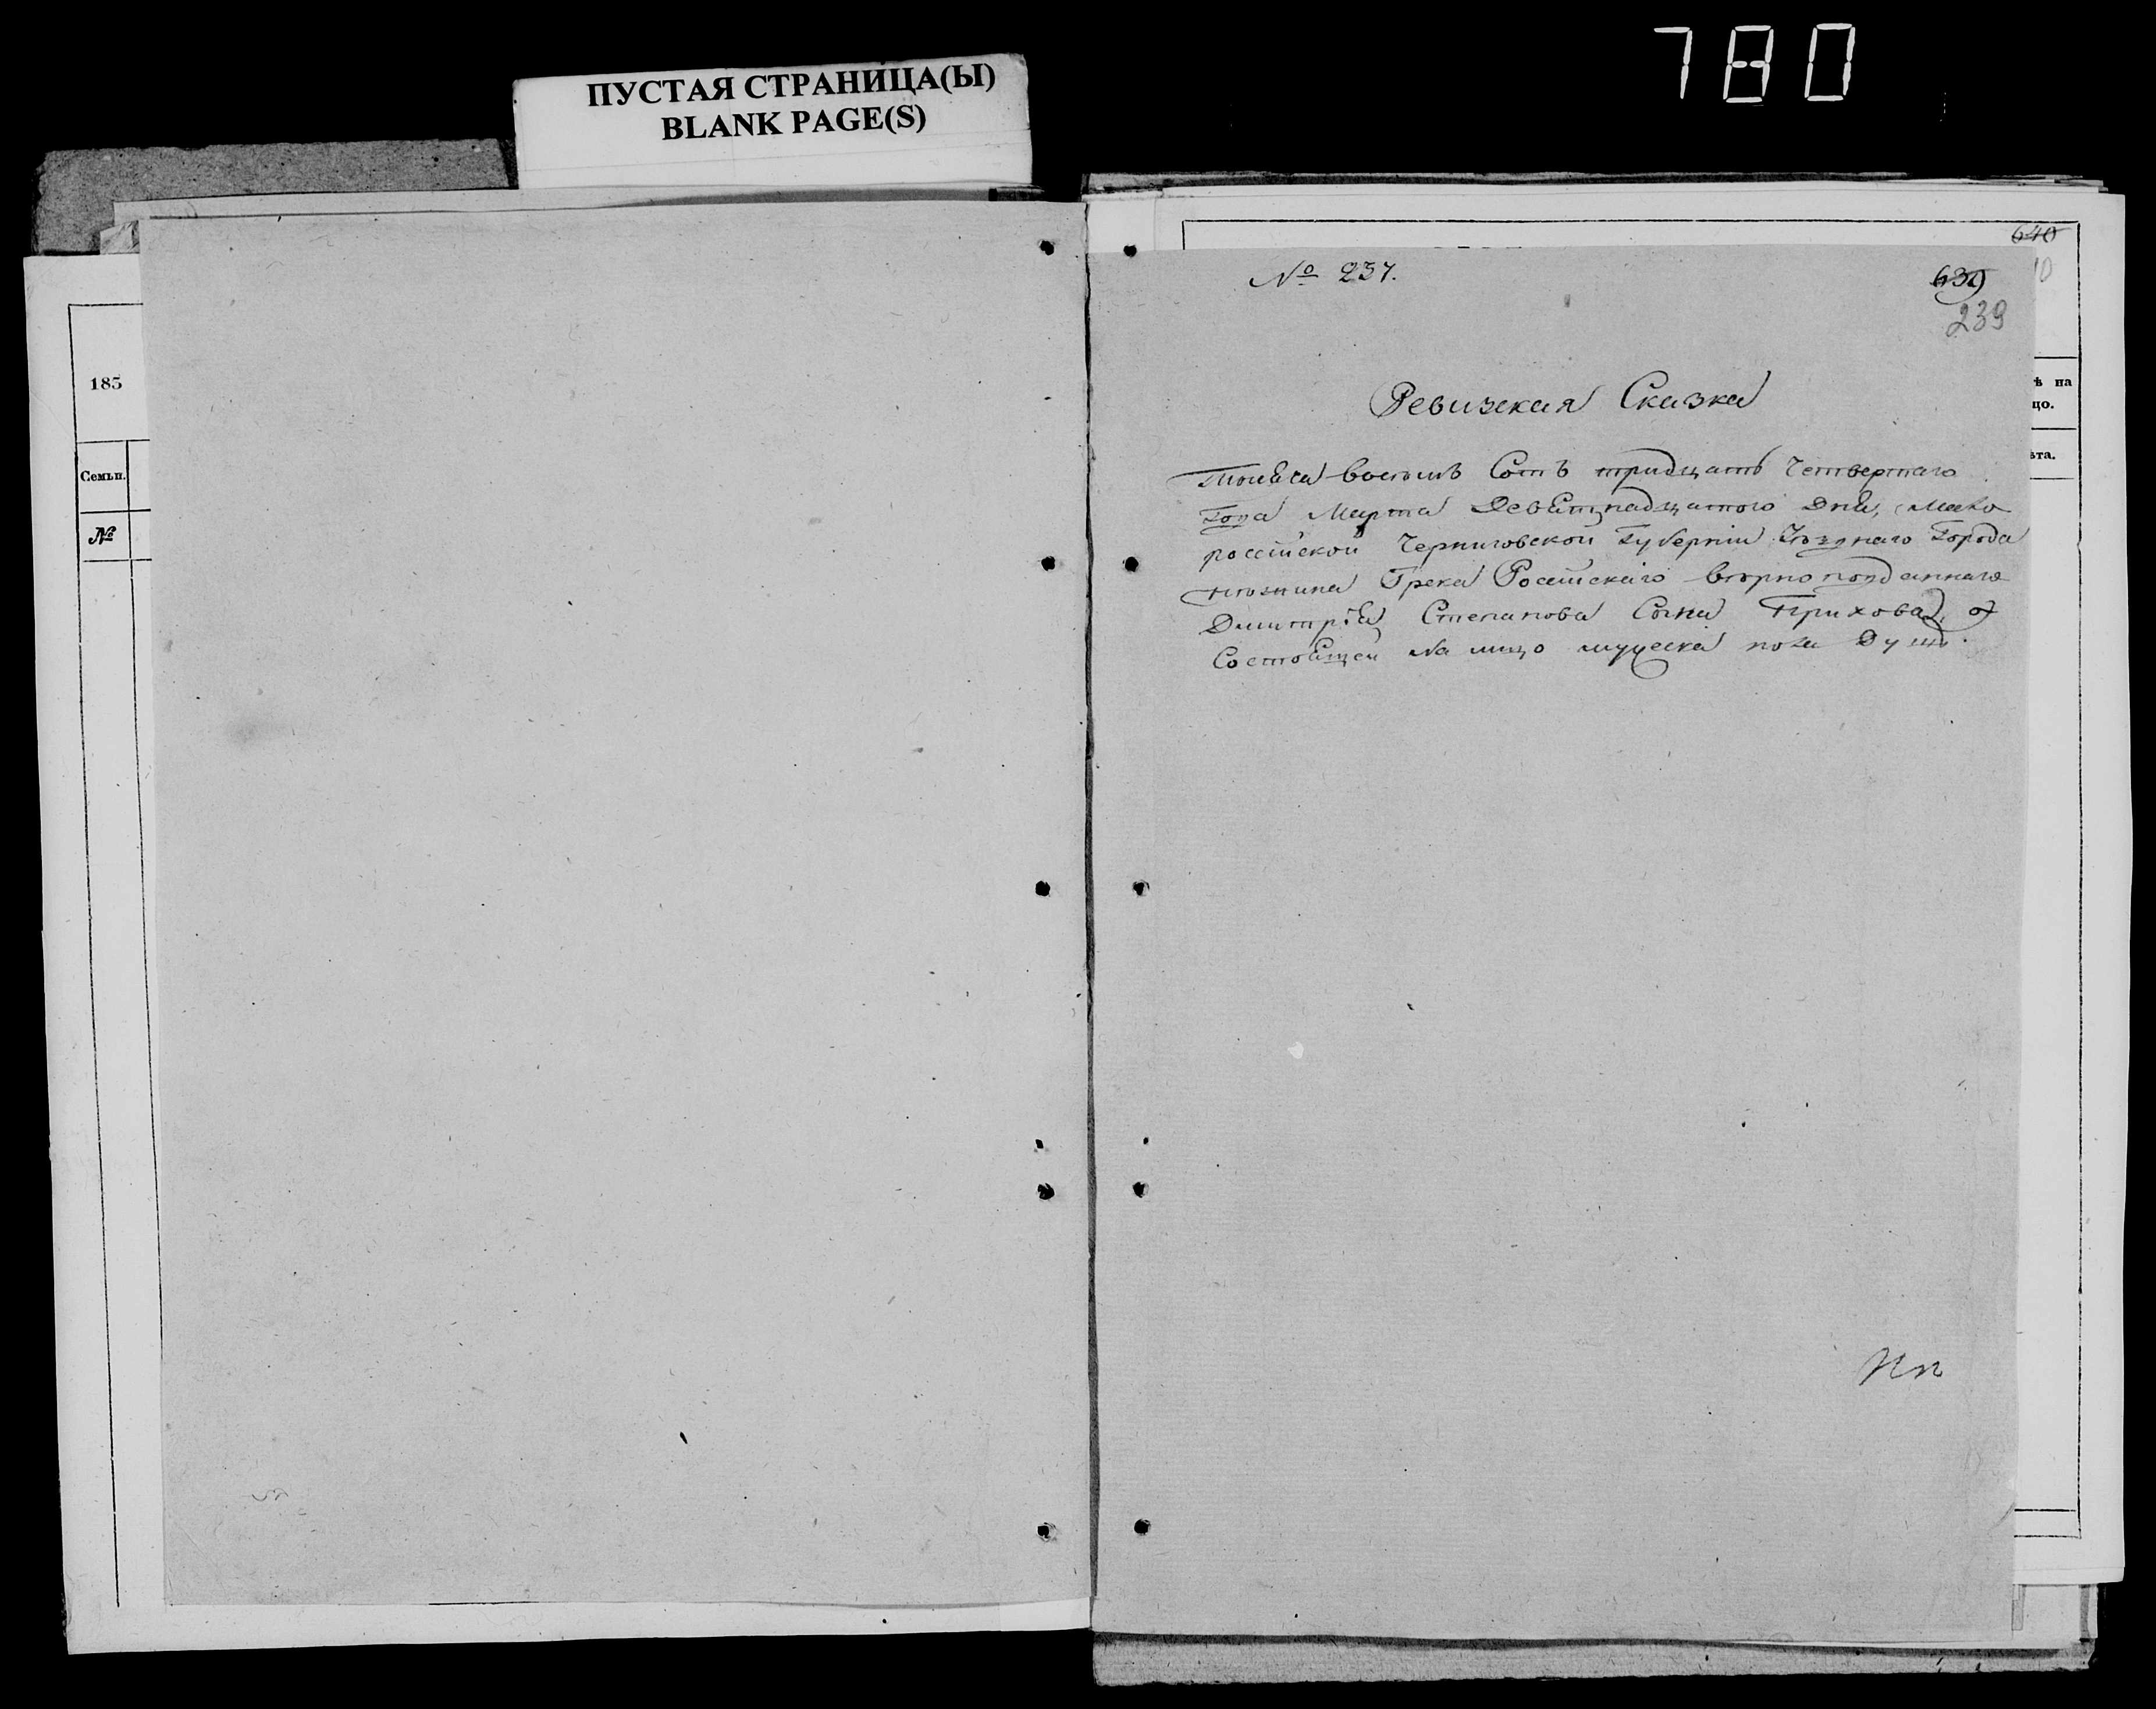 780
ПУСТАЯ СТРАНИЦА(Ы)
BLANK PAGE(S)
185
Семьи.
№
640
№ 237.
639
239
ѣ на
цо.
ѣта.
Ревизская Сказка
Тысяча восемь Сотъ тридцать Четвертаго
Года Марта Девятнадцатого Дня, Мало
россійской Черниговской Губерніи Уѣзднаго Города
Нѣжина Грека Россійскаго вѣрноподданнаго
Дмитрія Степанова Сына о
Состоящей На лицо мужеска пола Душѣ.